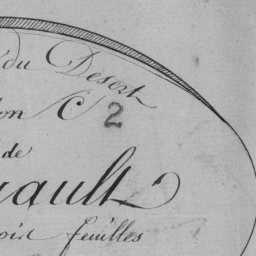 du Desert
on C 2
de
ault
oix feuilles